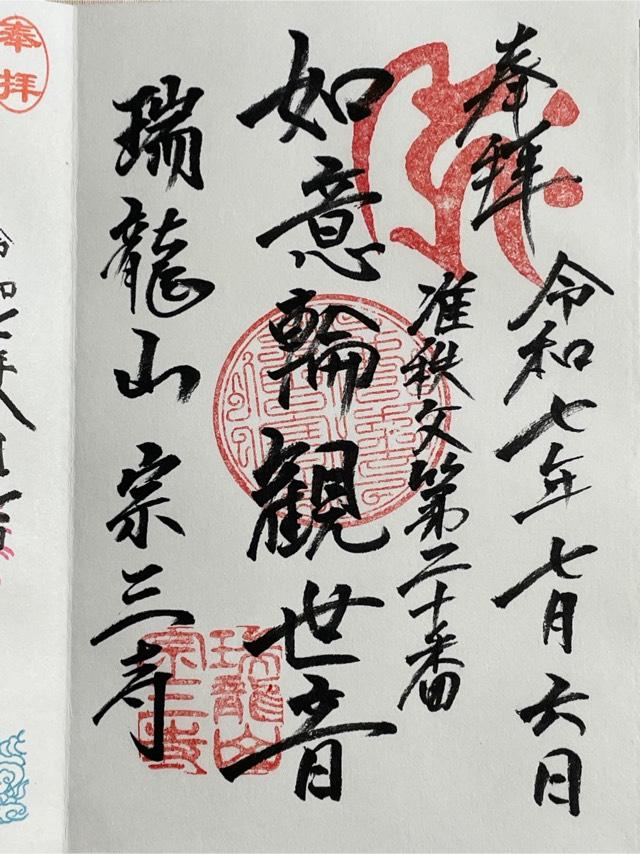 奉拝
令和七年七月六日
准秩父第二十番
如意輪觀世音
瑞龍山 宗三寺
瑞龍山
宗三寺
奉拝